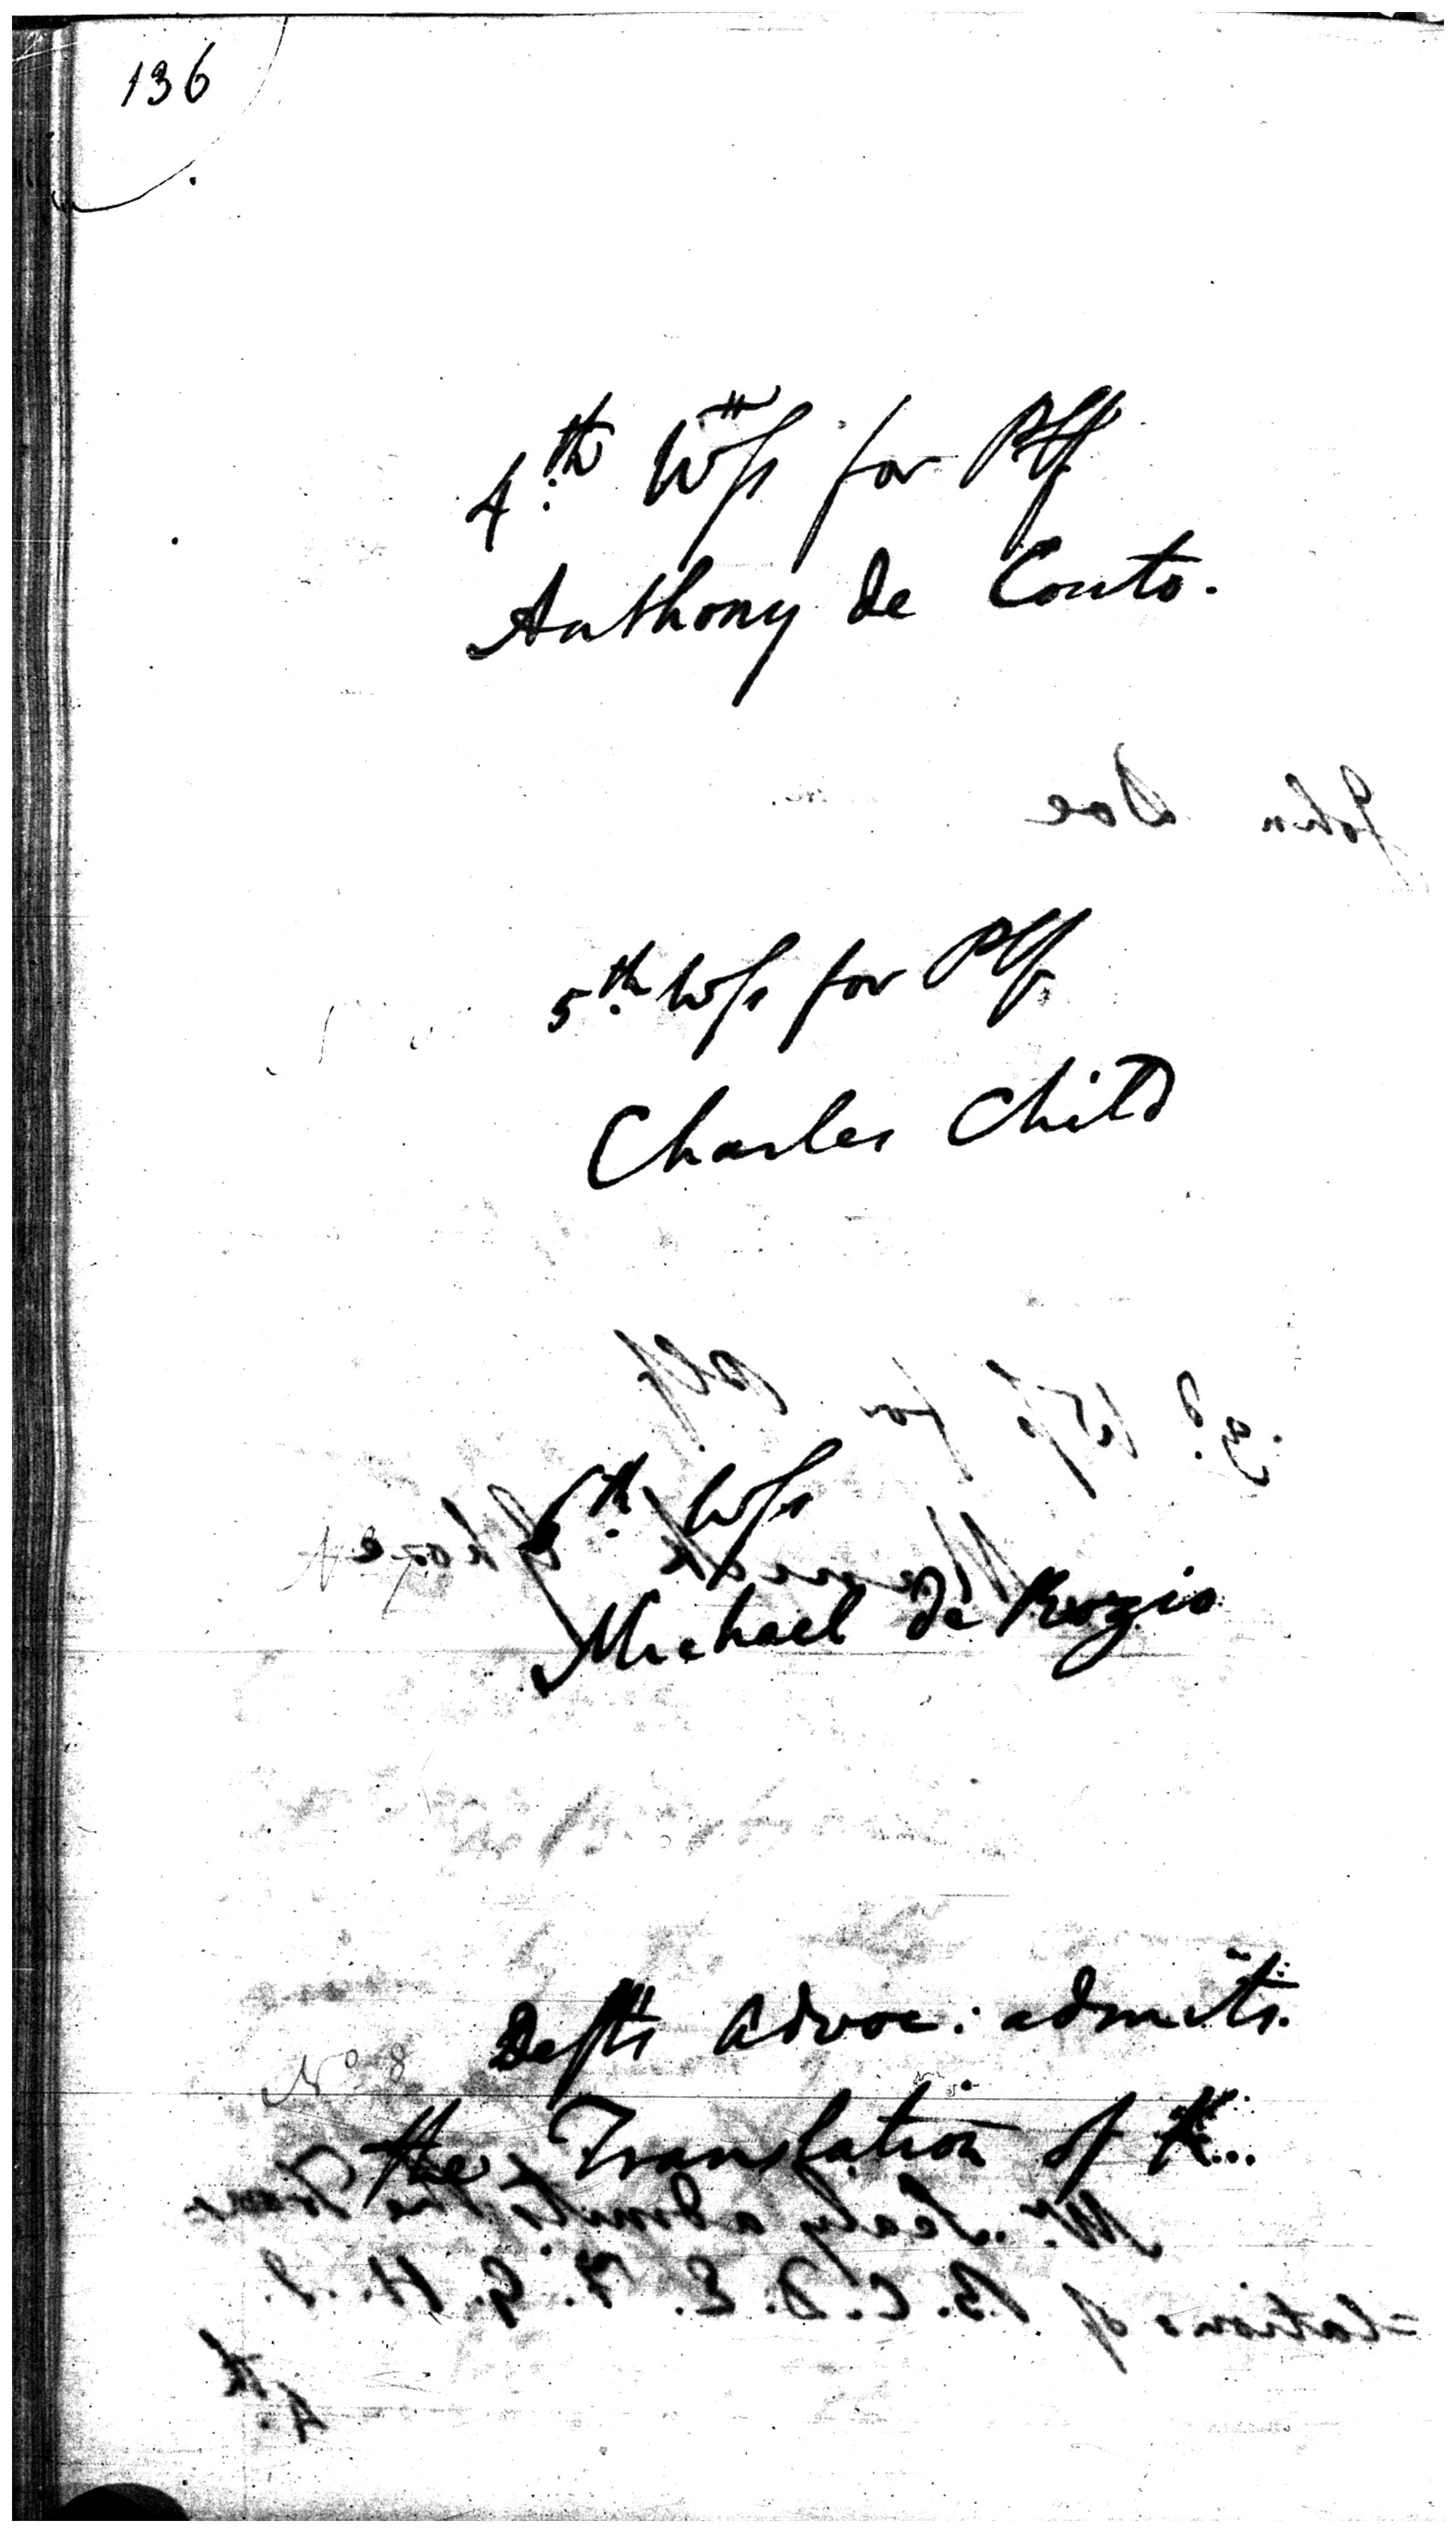 136
4.th Wss for Plff
Anthony de Couto.
5.th Wss for Plff
Charles Child
6.th Wss
Michael de Rozio
Defts Advoc: admits.
the Translation of K...